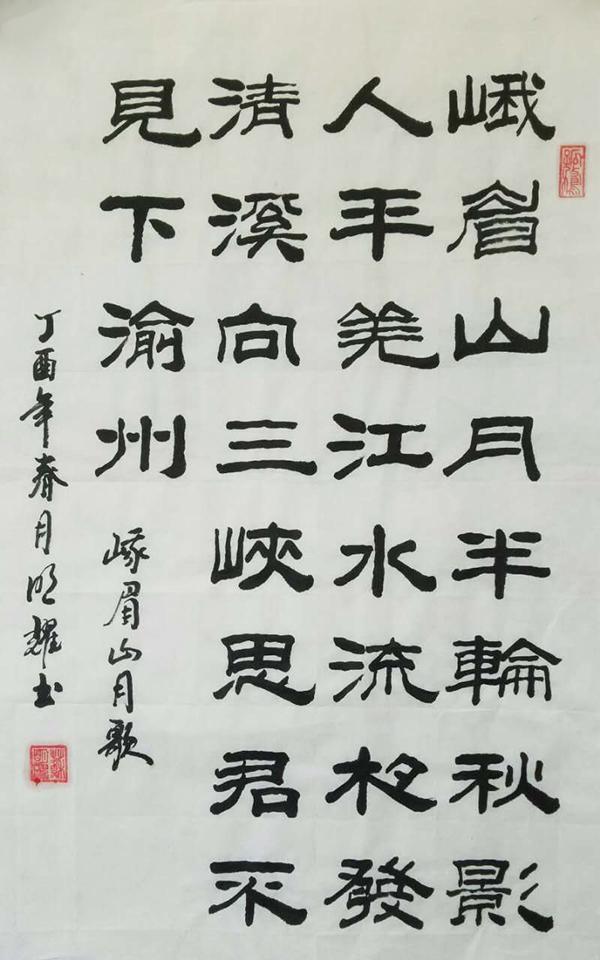 峨眉山月半輪秋影
入平羌江水流夜發
清溪向三峽思君不
見下渝州
峨眉山月歌
丁酉年春月明耀书